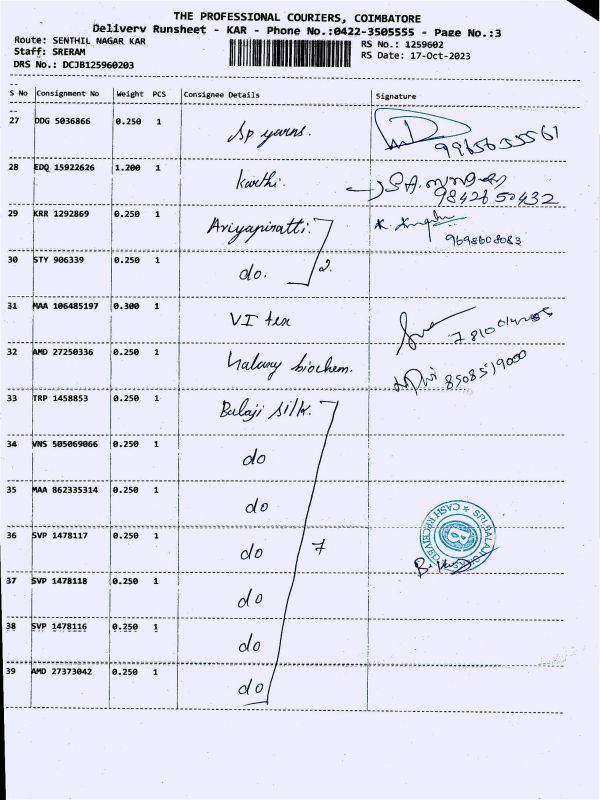 THE PROFESSIONAL COURIERS, COIMBATORE
Delivery Runsheet - KAR - Phone No.:0422-3505555 - Page No.:3
Route: SENTHIL NAGAR KAR
RS No.: 1259602
Staff: SRERAM
RS Date: 17-Oct-2023
DRS No.: DCJB125960203
S No Consignment No Weight PCS Consignee Details Signature
27 DDG 5036866 0.250 1 Sp yarns. 9965635561
28 EDQ 15922626 1.200 1 Karthi. 9842650432
29 KRR 1292869 0.250 1 Ariyapiratti. 9698608083
30 STY 906339 0.250 1 do. 2.
31 MAA 106485197 0.300 1 VI tex
32 AMD 27250336 0.250 1 biochem. 8508519000
33 TRP 1458853 0.250 1 Balaji silk.
34 VNS 505069066 0.250 1 do
35 MAA 862335314 0.250 1 do
36 SVP 1478117 0.250 1 do 7
37 SVP 1478118 0.250 1 do
38 SVP 1478116 0.250 1 do
39 AMD 27373042 0.250 1 do